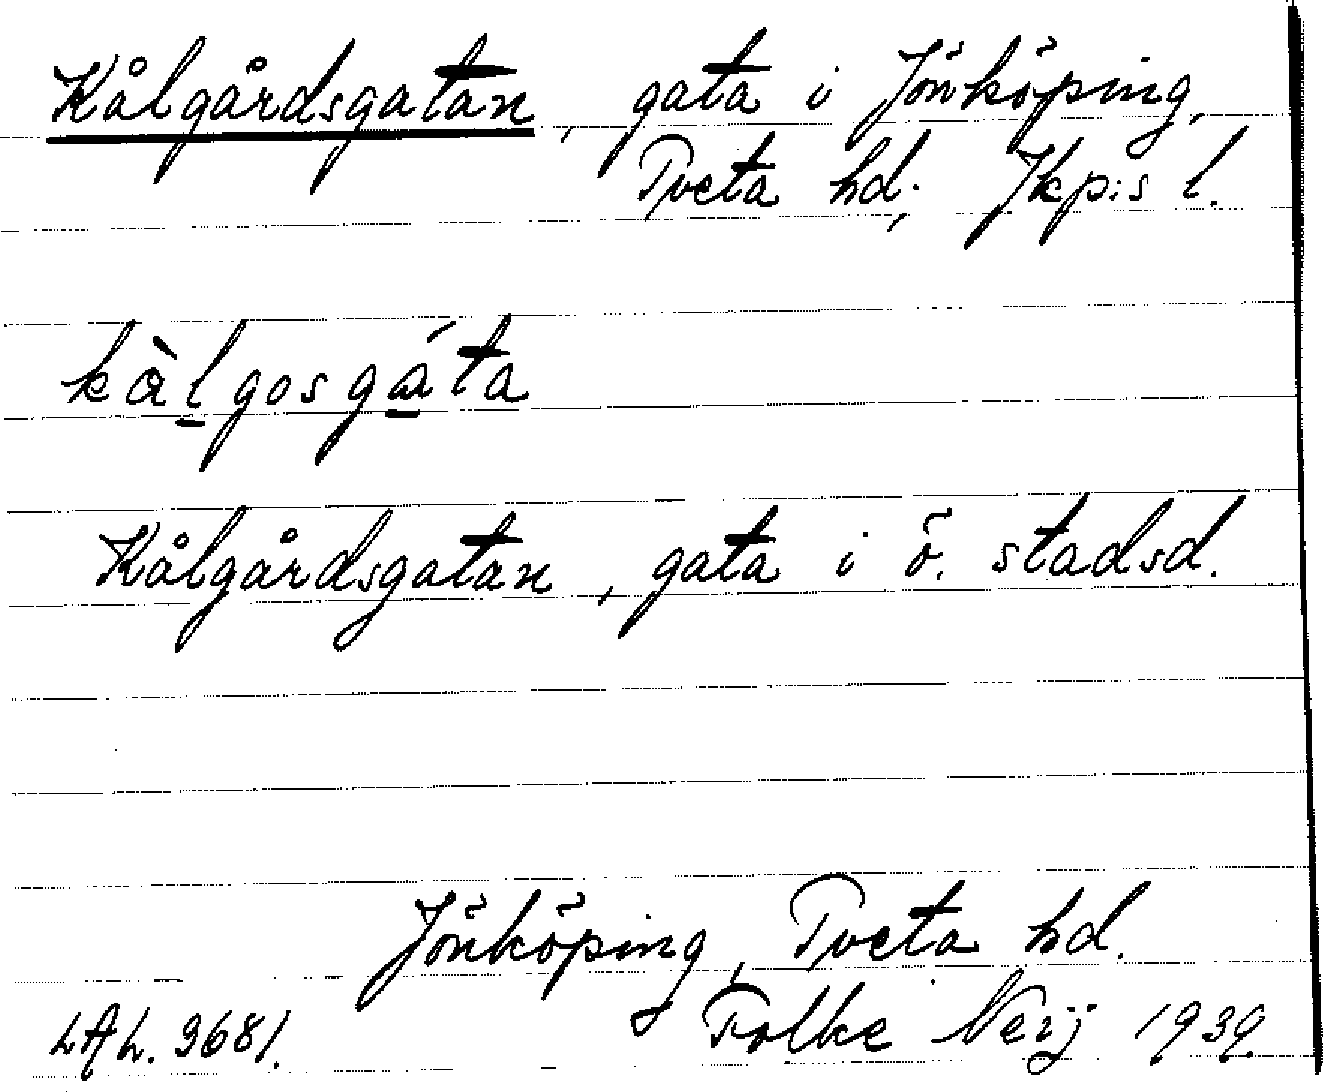 Kålgårdsgatan, gata i Jönköping,
Tveta hd., Jkp:s l.
kàlgosgáta
Kålgårdsgatan, gata i ö. stadsd.
Jönköping, Tveta hd.
LAL. 3681. Folke Neij 1939.